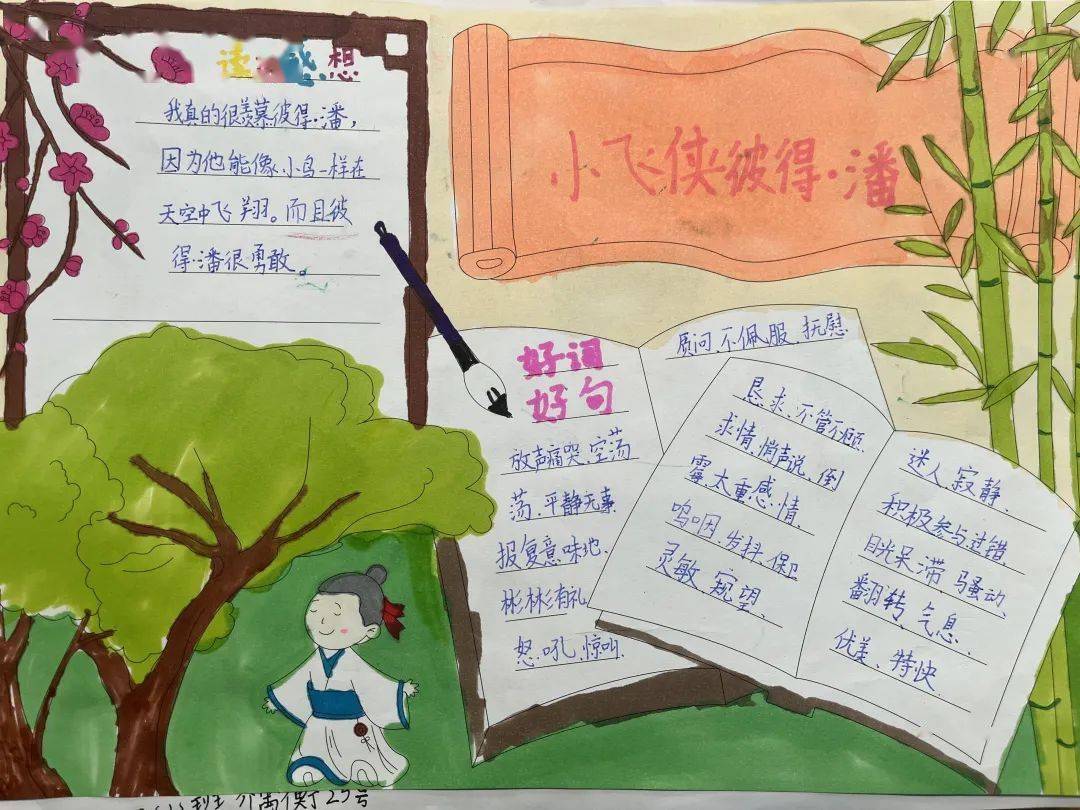 小飞侠彼得·潘
读 感想
我真的很羡慕彼得·潘，
因为他能像小鸟一样在
天空中飞翔。而且彼
得·潘很勇敢。
好词
好句
放声痛哭、空荡
荡、平静无事、
报复意味地、
彬彬有礼、
怒吼、惊叫、
质问、不佩服、抚慰、
恳求、不管不顾、
求情、悄声说、倒
霉、太重感情、
呜咽、发抖、保卫
灵敏、窥望、
迷人、寂静、
积极参与、过错、
目光呆滞、骚动、
翻转、气息、
优美、特快
班 25号